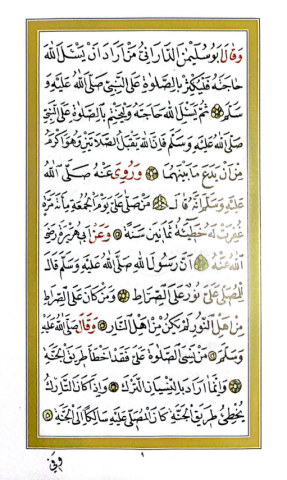 وَقَالَ أَبُو سُلَيْمٰنَ الدَّارَانِيُّ مَنْ أَرَادَ أَنْ يَسْئَلَ اللهَ
حَاجَتَهُ فَلْيُكْثِرْ بِالصَّلٰوةِ عَلَى النَّبِيِّ صَلَّى اللهُ عَلَيْهِ وَ
سَلَّمَ ثُمَّ يَسْئَلِ اللهَ حَاجَتَهُ وَلْيَخْتِمْ بِالصَّلٰوةِ عَلَى النَّبِيِّ
صَلَّى اللهُ عَلَيْهِ وَسَلَّمَ فَإِنَّ اللهَ يَقْبَلُ الصَّلَاتَيْنِ وَهُوَ أَكْرَمُ
مِنْ أَنْ يَدَعَ مَا بَيْنَهُمَا وَرُوِيَ عَنْهُ صَلَّى اللهُ
عَلَيْهِ وَسَلَّمَ أَنَّهُ قَالَ مَنْ صَلَّى عَلَيَّ يَوْمَ الْجُمُعَةِ مِائَةَ مَرَّةٍ
غُفِرَتْ لَهُ خَطِيئَةُ ثَمَانِينَ سَنَةً وَعَنْ أَبِي هُرَيْرَةَ رَضِيَ
اللهُ عَنْهُ أَنَّ رَسُولَ اللهِ صَلَّى اللهُ عَلَيْهِ وَسَلَّمَ قَالَ
لِلْمُصَلِّي عَلَيَّ نُورٌ عَلَى الصِّرَاطِ وَمَنْ كَانَ عَلَى الصِّرَاطِ
مِنْ أَهْلِ النُّورِ لَمْ يَكُنْ مِنْ أَهْلِ النَّارِ وَقَالَ صَلَّى اللهُ عَلَيْهِ
وَسَلَّمَ مَنْ نَسِيَ الصَّلٰوةَ عَلَيَّ فَقَدْ أَخْطَأَ طَرِيقَ الْجَنَّةِ
وَإِنَّمَا أَرَادَ بِالنِّسْيَانِ التَّرْكَ وَإِذَا كَانَ التَّارِكُ
يُخْطِئُ طَرِيقَ الْجَنَّةِ كَانَ الْمُصَلِّي عَلَيْهِ سَالِكًا إِلَى الْجَنَّةِ
٩
وَفِي